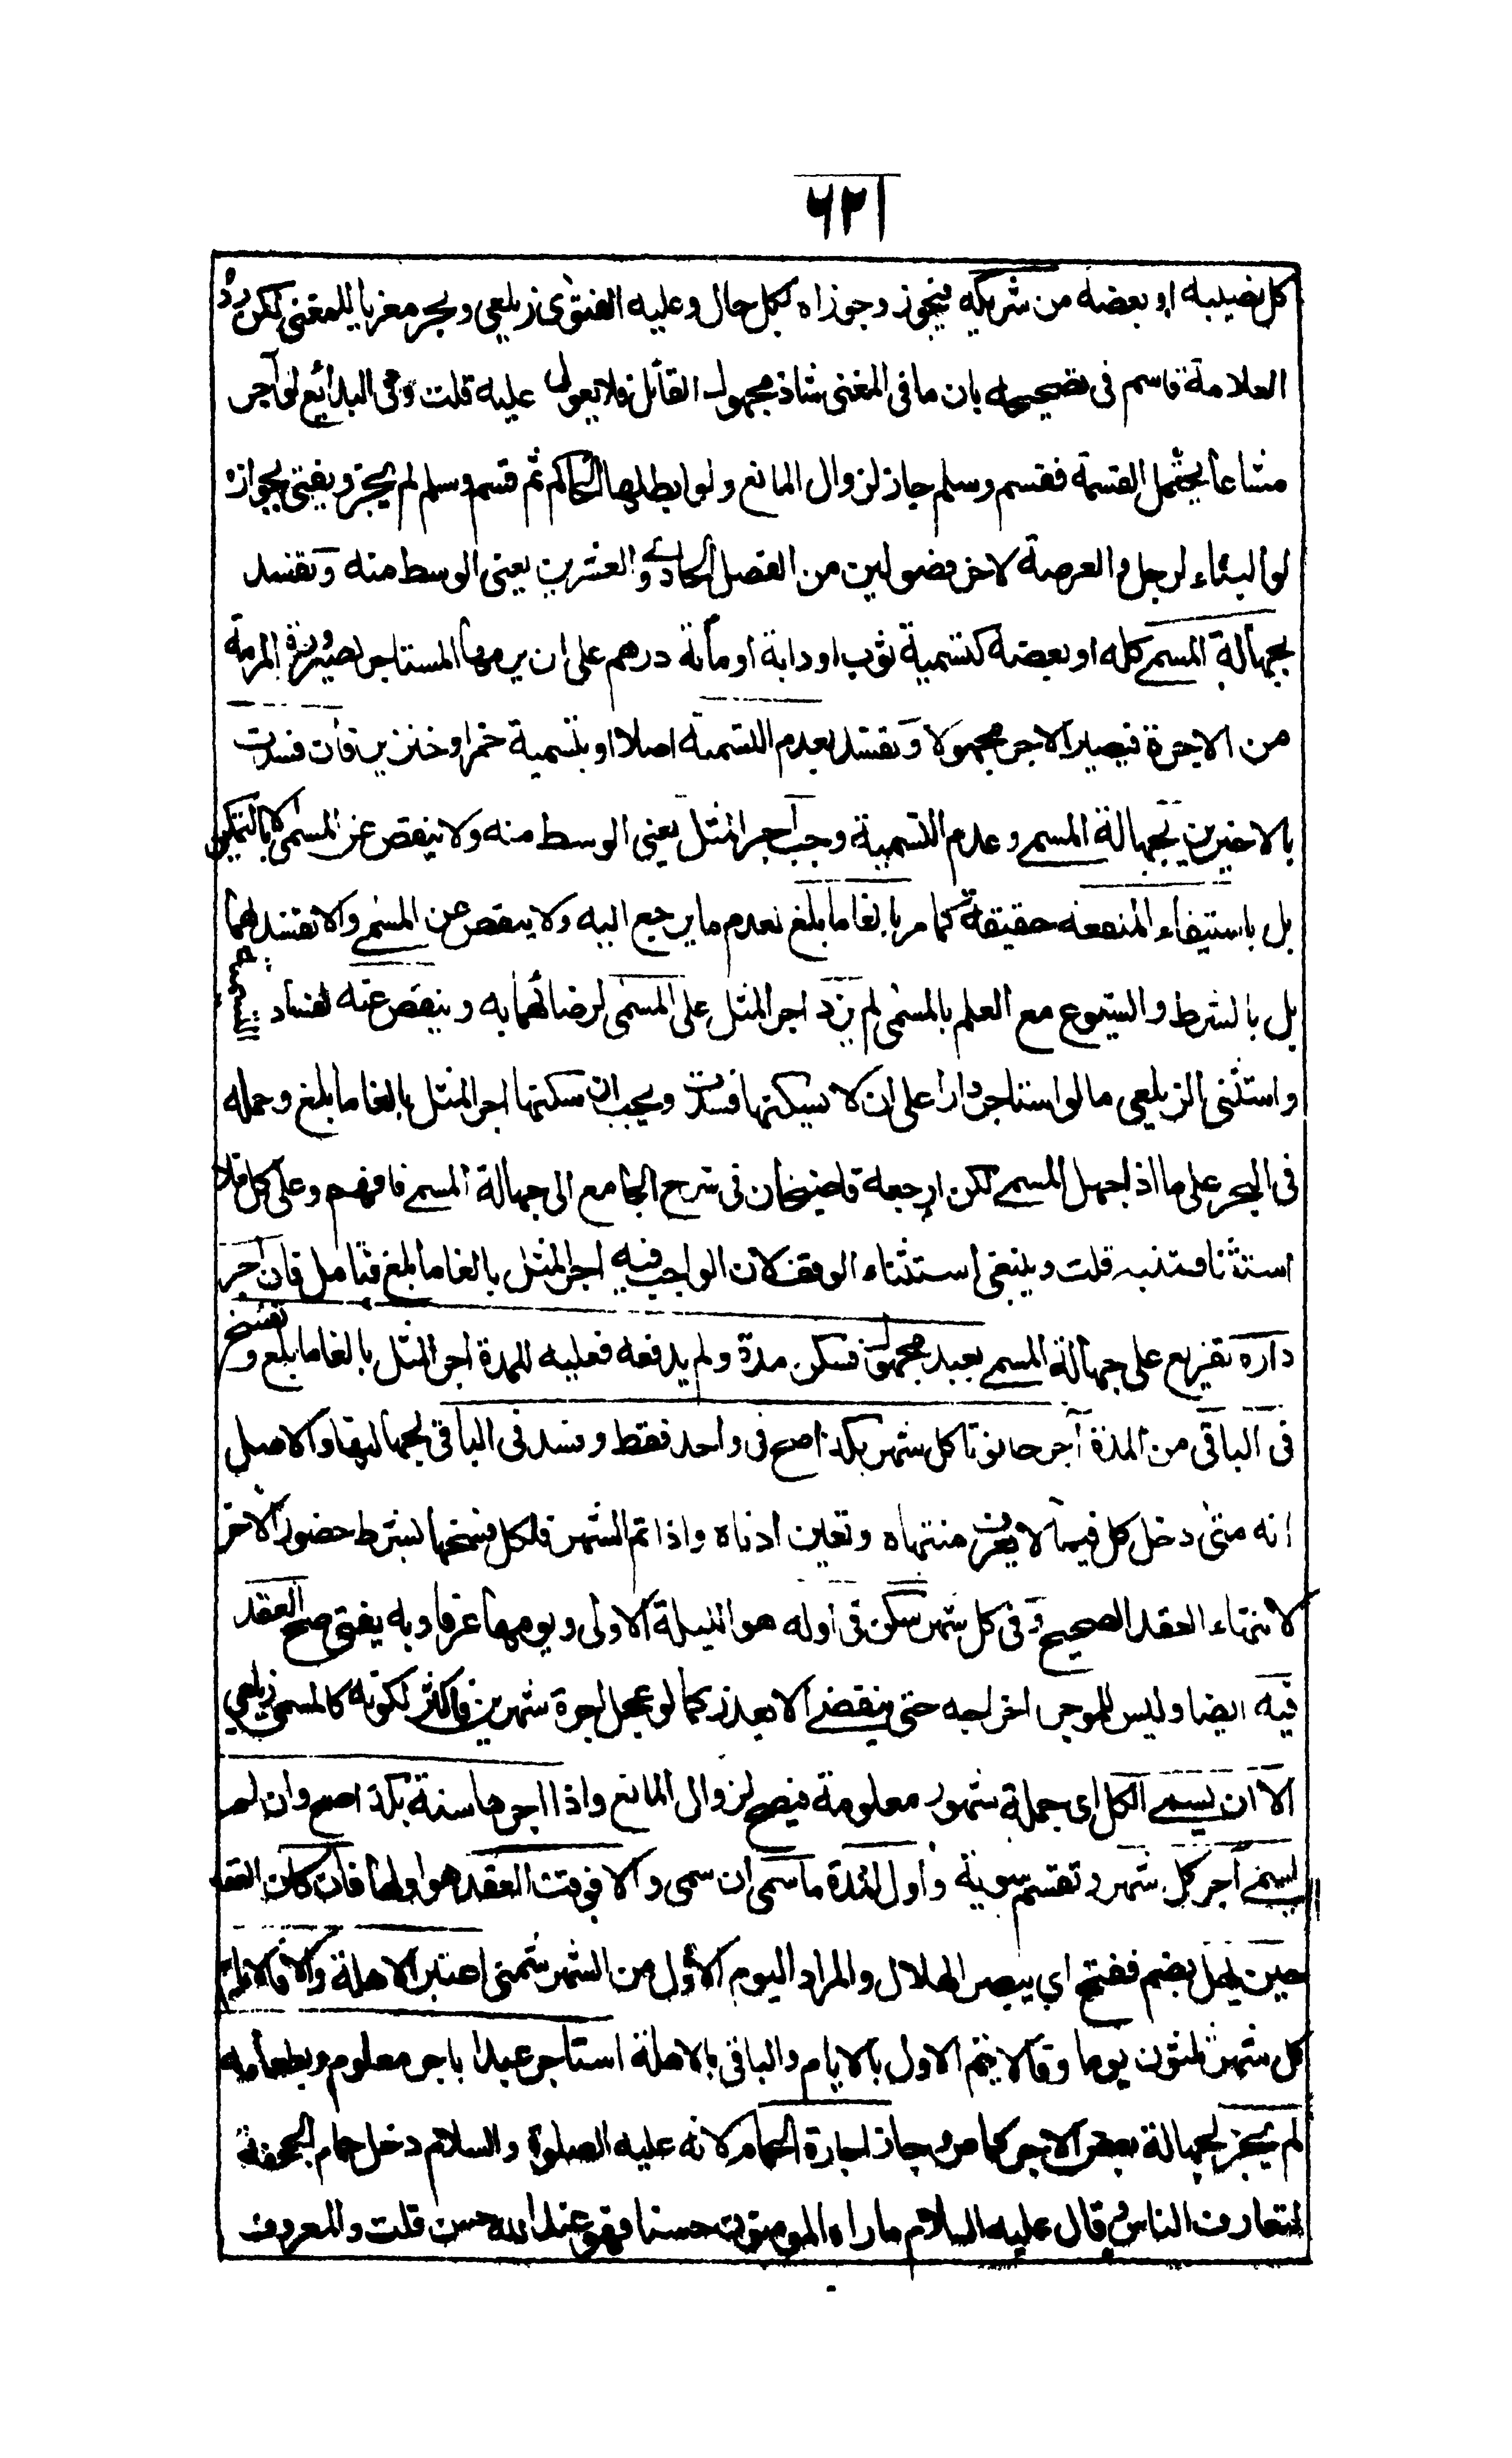 ٦٢١
كل نصيبه او بعضه من شريكه فيجوز وجوزاه لكل حال وعليه الفتوى زيلعي وبحر معزيا للمغني لكن رده
العلامة قاسم في تصحيحه بان ما في المغني شاذ مجهول القائل فلا يعول عليه قلت وفي البدائع لو آجر
مشاعا يحتمل القسمة فقسم وسلم جاز لزوال المانع ولو ابطلها الحاكم ثم قسم وسلم لم يجز ويفتى بجوازه
لو البناء لرجل والعرصة لاخر فصولين من الفصل الحادي والعشرين يعني الوسط منه وتفسد
بجهالة المسمى كله او بعضه كتسمية ثوب او دابة او مأية درهم على ان يرمها المستاجر لصيرورة المرمة
من الاجرة فيصير الاجر مجهولا وتفسد بعدم التسمية اصلا او بتسمية خمر او خنزير فان فسدت
بالاخيرين بجهالة المسمى وعدم التسمية وجب اجر المثل يعني الوسط منه ولا ينقص عن المسمى لا بالتمكين
بل باستيفاء المنفعه حقيقة كما مر بالغا ما بلغ لعدم ما يرجع اليه ولا ينقص عن المسمى والا تفسد بهما
بل بالشرط والشيوع مع العلم بالمسمى لم يزد اجر المثل على المسمى لرضائهما به وينقص عنه لفساد التسمية
واستثنى الزيلعي ما لو استاجر دارا على ان لا يسكنها فسدت ويجب ان سكنها اجر المثل بالغا ما بلغ وحمله
في البحر على ما اذا جهل المسمى لكن ارجعه قاضيخان في شرح الجامع الى جهالة المسمى فافهم وعلى كل فلا
استثنا فتنبه قلت وينبغي استثناء الوقف لان الواجب فيه اجر المثل بالغا ما بلغ فتامل فان آجر
داره تفريع على جهالة المسمى بعبد مجهول فسكن مدة ولم يدفعه فعليه للمدة اجر المثل بالغا ما بلغ وتفسخ
في الباقي من المدة آجر حانوتا كل شهر بكذا صح في واحد فقط وفسد في الباقي لجهالتها والاصل
انه متى دخل كل فيما لا يعرف منتهاه وتعين ادناه واذا تم الشهر فلكل فسخها بشرط حضور الاخر
لانتهاء العقد الصحيح وفي كل شهر سكن في اوله هو الليلة الاولى ويومها عرفا وبه يفتى صح العقد
فيه ايضا وليس للموجر اخراجه حتى ينقضي الا بعذر كما لو عجل اجرة شهرين فاكثر لكونه كالمسمى زيلعي
الا ان يسمى الكل اى جملة شهور معلومة فيصح لزوال المانع واذا اجرها سنة بكذا صح وان لم
يسم اجر كل شهر وتقسم سوية واول المدة ما سمى ان سمى والا فوقت العقد هو اولها فان كان العقد
حين يهل بضم ففتح اي يبصر الهلال والمراد اليوم الاول من الشهر شمني اعتبر الاهلة والا فالايام
كل شهر ثلثون يوما وقالا يتم الاول بالايام والباقي بالاهلة استاجر عبدا باجر معلوم وبطعامه
لم يجز لجهالة بعض الاجر كما مر وجاز اجارة الحمام لانه عليه الصلوة والسلام دخل حمام الجحفة
لتعارف الناس وقال عليه السلام ما راه المومنون حسنا فهو عند الله حسن قلت والمعروف